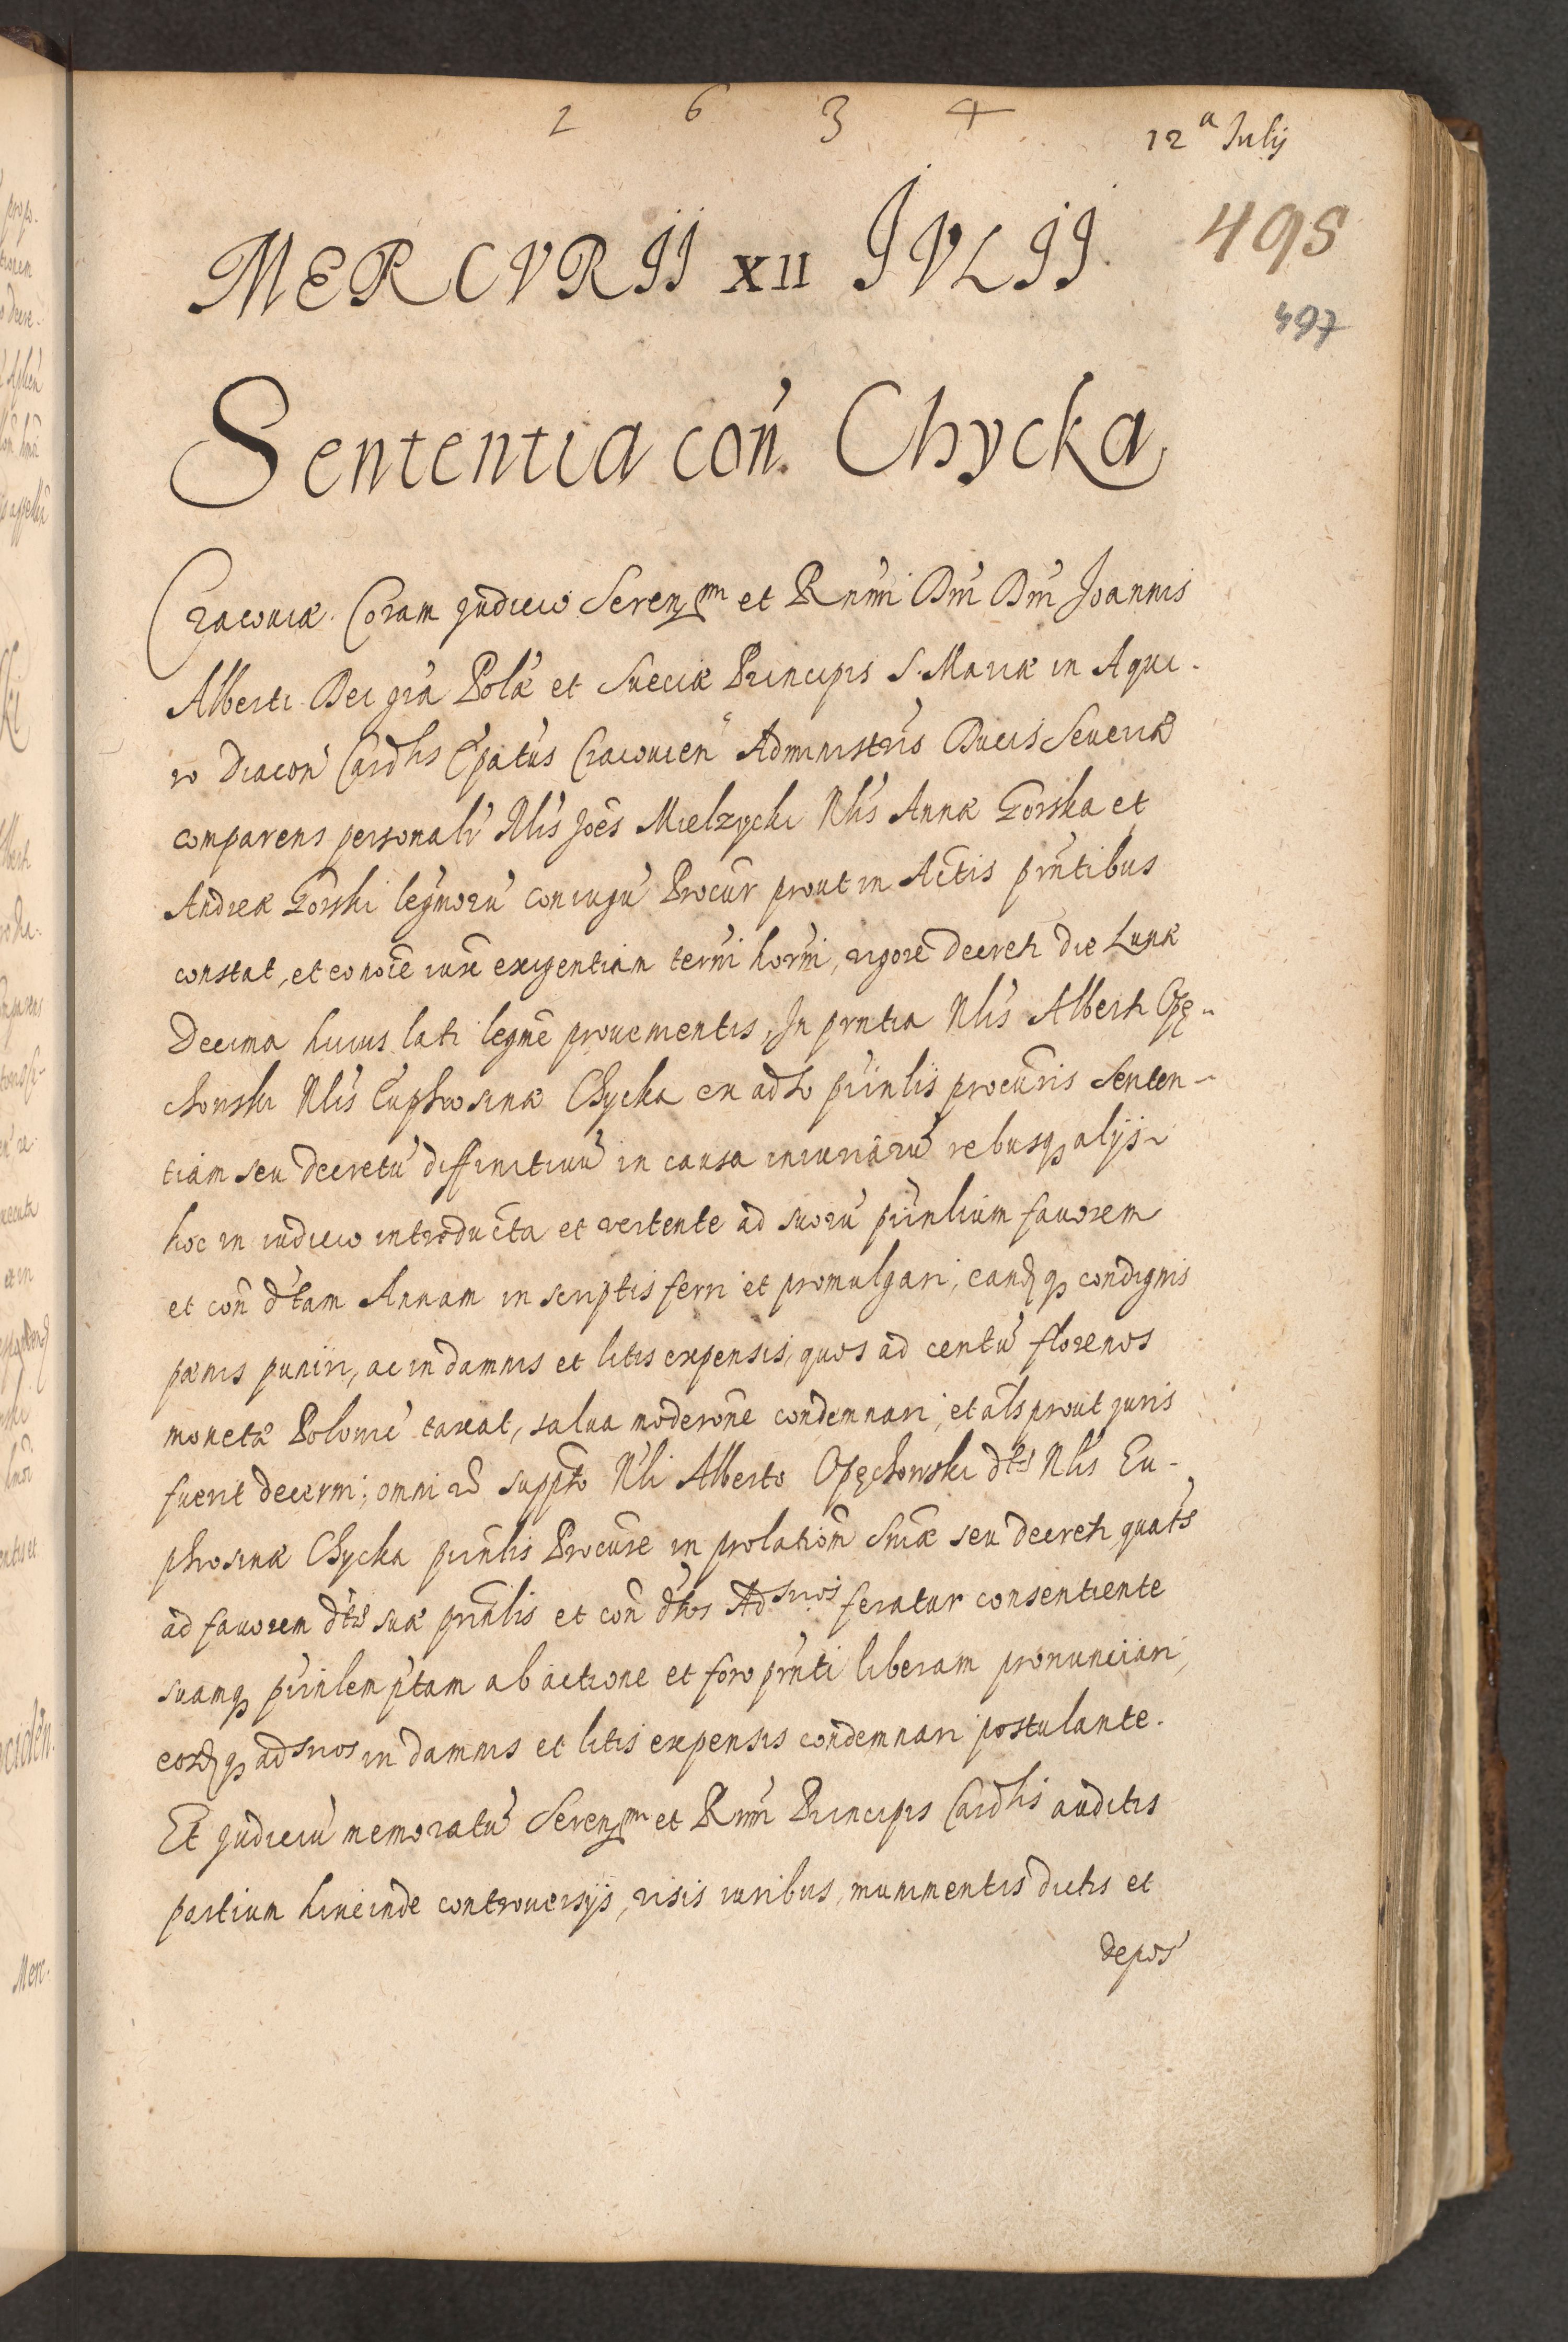 1 6 3 4
12ª Julij
498
497
MERCVRII XII JVLII
Sententia coń. Chycka
Cracouiæ. Coram Judicio Serenmi et Rńmi Dńi Dńi Joannis
Alberti Dei gr̃a Polæ et Sueciæ Principis S. Mariæ in Aqui-
ro Diacon Cardlis Ep̃atus Cracouien Administris Ducis Seueriæ
comparens personalr Nlis Joēs Mielzycki Nlis Annæ Gorska et
Andreæ Gorski legmorũ coniugũ Procur̃ prout in Actis pñtibus
constat, et eo noīe iurē exigentiam termi hormi, vigore decreti die Lunæ
Decima huius lati legmē prouenientis, In pñtia Nlis Alberti Opę-
chowski Nlis Euphrosinæ Chycka ex adso prinlis procuris Senten-
tiam seu decretũ diffinitiuũ in causa iniuriarũ rebusq alijs
hoc in iudicio introducta et vertente ad suorũ prinlium fauorem
et coñ dtam Annam in scriptis ferri et promulgari, eandq condignis
pænis puniri, ac in damnis et litis expensis, quos ad centũ florenos
monetæ Polonic taxat, salua moderoñe condemnari, et als prout juris
fuerit decerni; omni eo suppto Nli Alberto Opęchowski dtæ Nlis Eu-
phrosinæ Chycka prinlis Procure in prolationē Sniæ seu decreti quats
ad fauorem dtæ suæ prinlis et coñ dtos Adsrios feratur consentiente
suamq prinlem ptam ab actione et foro pñti liberam pronunciari,
eosdq adsrios in damnis et litis expensis condemnari postulante.
Et Judiciũ memoratũ Serenmi et Rmi Principis Cardlis auditis
partium hincinde controuersijs, visis iuribus, munimentis dictis et
depos